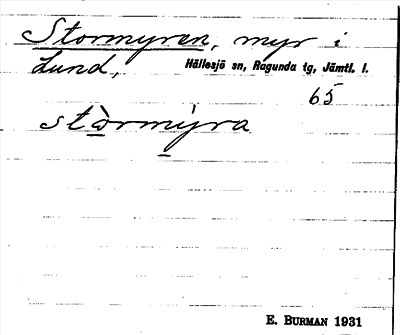 Stormyren, myr i
Lund, Hällesjö sn, Ragunda tg, Jämtl. l.
65
stòrmýra
E. BURMAN 1931